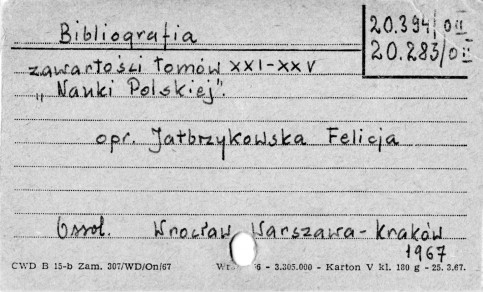 Bibliografia
20.394/OII
20.283/OII
zawartości tomów XXI-XXV
„Nauki Polskiej".
opr. Jałbrzykowska Felicja
Ossol. Wrocław Warszawa-Kraków
1967
CWD B 15-b Zam. 307/WD/On/67 - 3.305.000 - Karton V kl. 180 g - 25. 3.67.